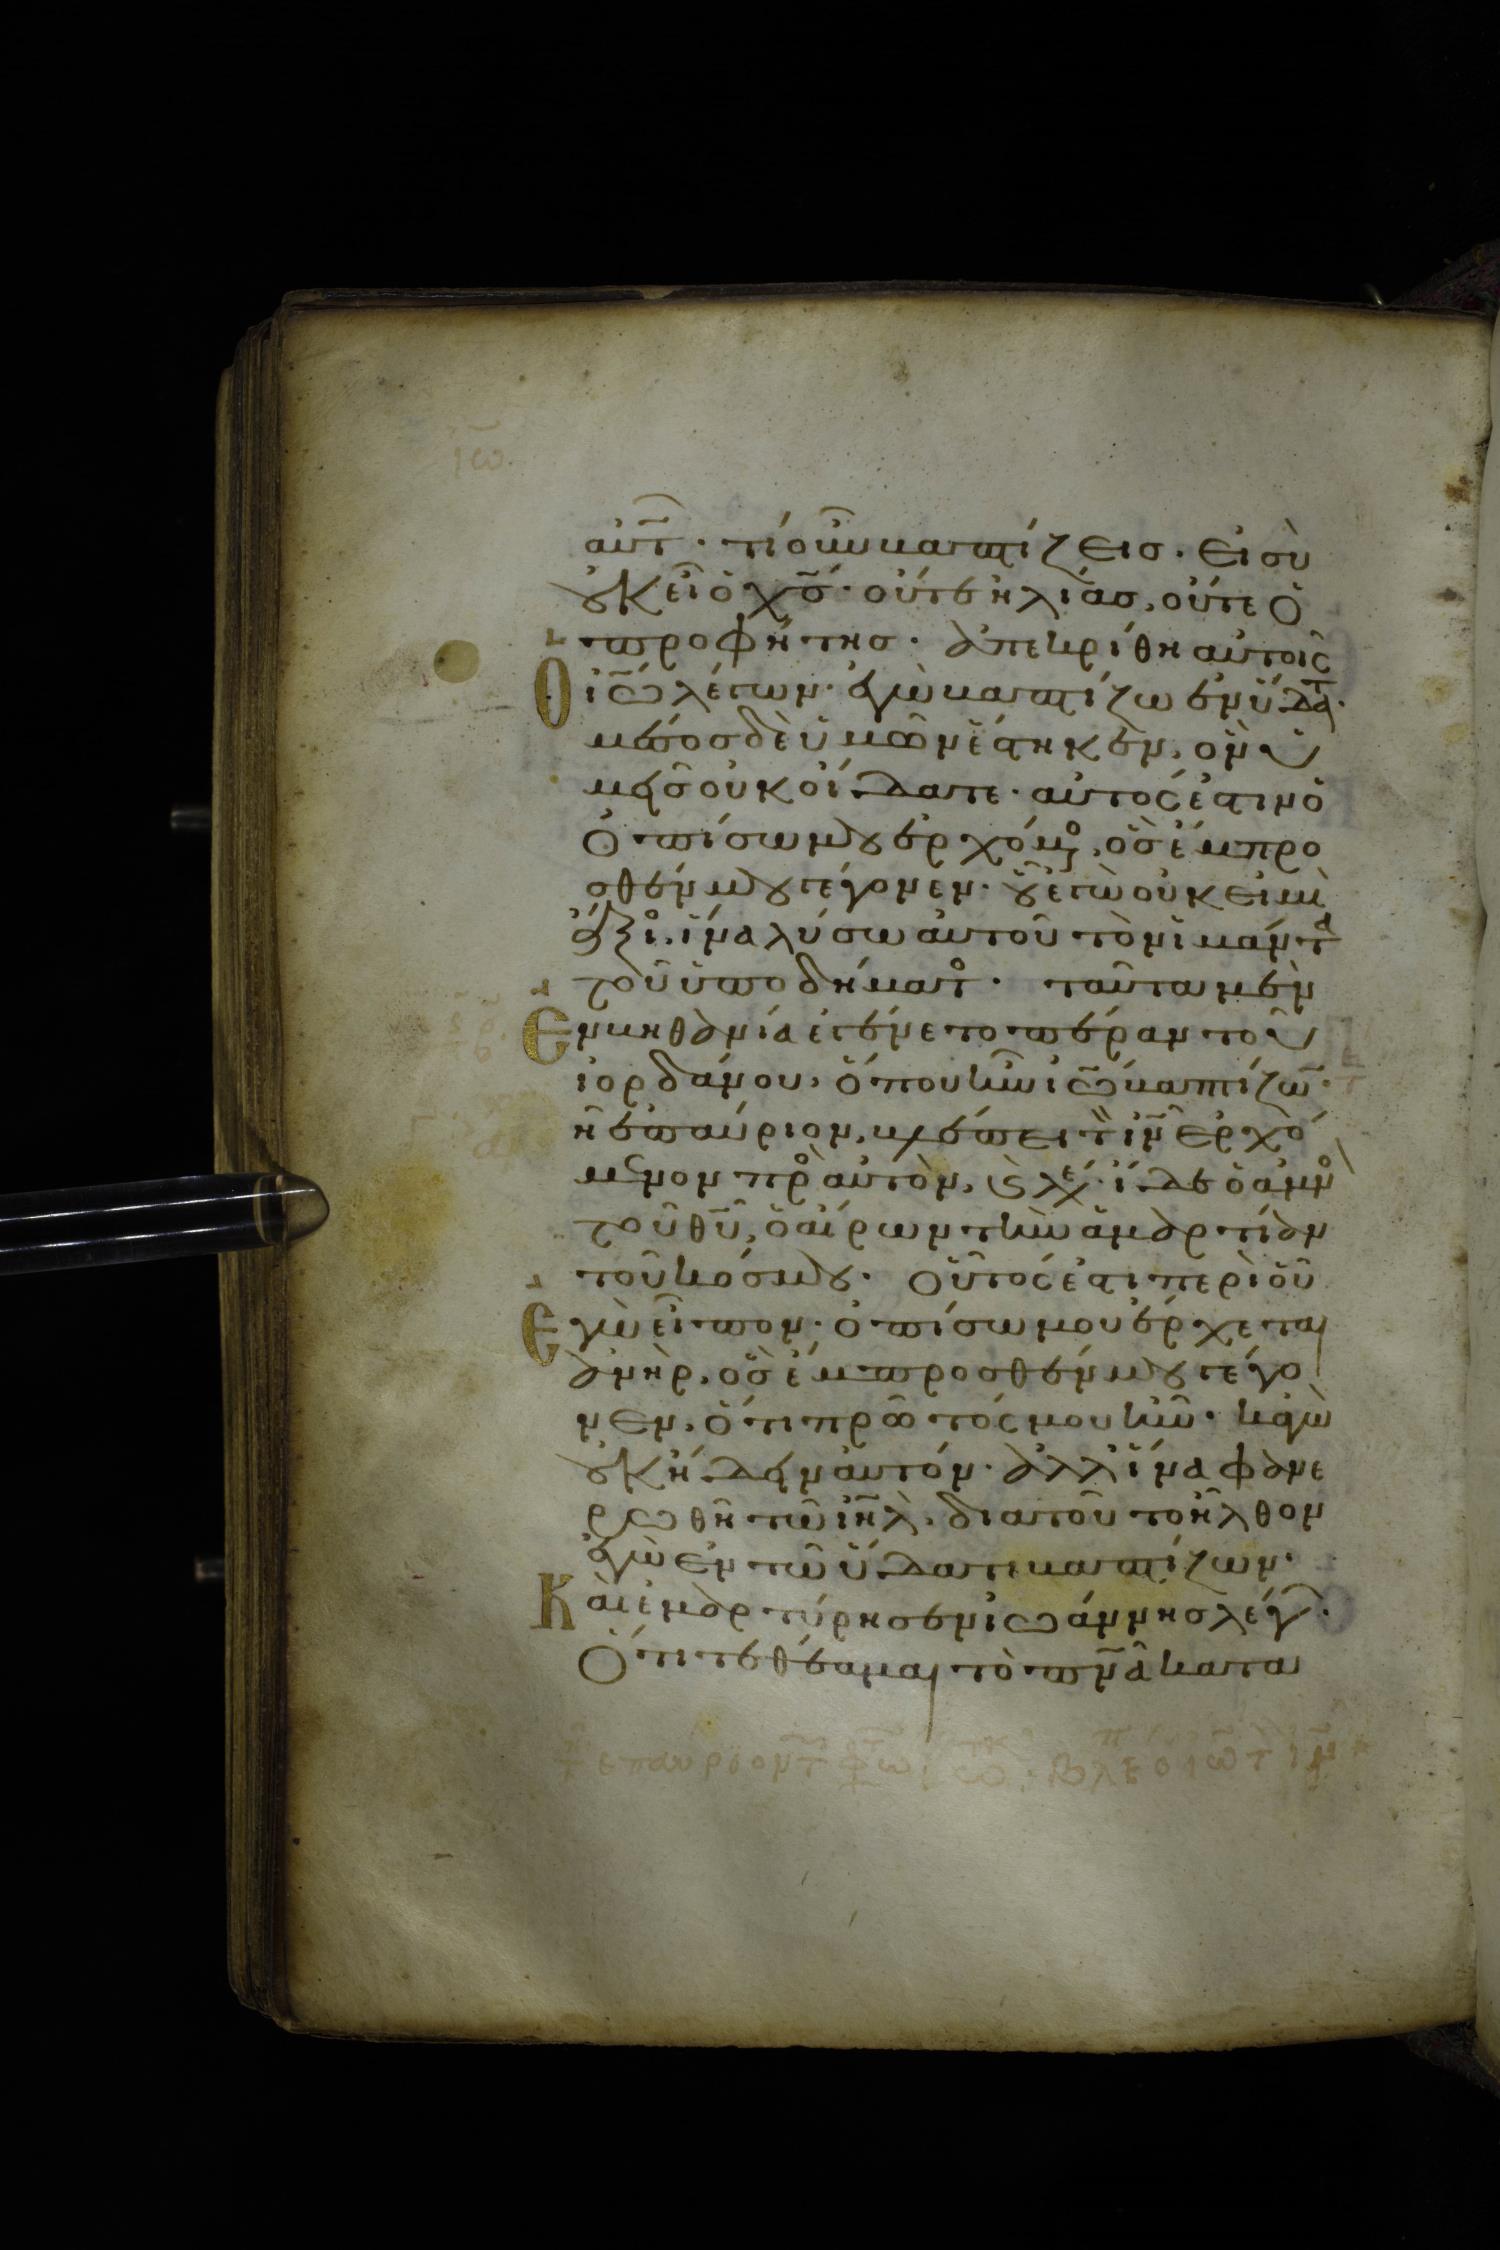 ιω
αὐτ· τί οὖν βαπτίζεισ· εἰ σὺ
οὐκ εἶ ὁ χσ· οὔτε ἠλίασ, οὔτε ὁ
προφήτησ· ἀπεκρίθη αὐτοῖς
ὁ ἰω λέγων· ἐγὼ βαπτίζω ἐν ὕδατ·
μέσοσ δὲ ὑμῶν ἔστηκεν, ὃν ὑ
μεῖσ οὐκ οἴδατε· αὐτός ἐστιν ὁ
ὀπίσω μου ἐρχόμ, ὃσ ἔμπρο
σθέν μου γέγονεν· οὗ ἐγὼ οὐκ εἰμὶ
ἄξι, ἵνα λύσω αὐτοῦ τὸν ἱμάντα
τοῦ ὑποδήματ· ταῦτα μὲν
Ἐν βηθανία ἐγένετο πέραν τοῦ
ἰορδάνου, ὅπου ἦν ἰω βαπτίζων·
τῆ ἐπαύριον, βλέπει τὸν ιν ἐρχό
μενον πρὸ αὐτὸν, καὶ λέγ· ἴδε ὁ ἀμν
τοῦ θυ, ὁ αἴρων τὴν ἁμαρτίαν
τοῦ κόσμου· οὗτός ἐστι περὶ οὗ
Ἐγὼ εἶπον· ὀπίσω μου ἔρχεται
ἀνὴρ, ὃσ ἔμπροσθέν μου γέγο
νεν, ὅτι πρῶτός μου ἦν· κἀγὼ
οὐκ ἤδειν αὐτόν· ἀλλ ἵνα φανε
ρωθῆ τῶ ιηλ, διατοῦτο ἦλθον
ἐγὼ ἐν τῶ ὕδατι βαπτίζων·
Καὶ ἐμαρτύρησεν ἰωάννησ λέγ·
Ὅτι τεθέαμαι τὸ πνα κατα